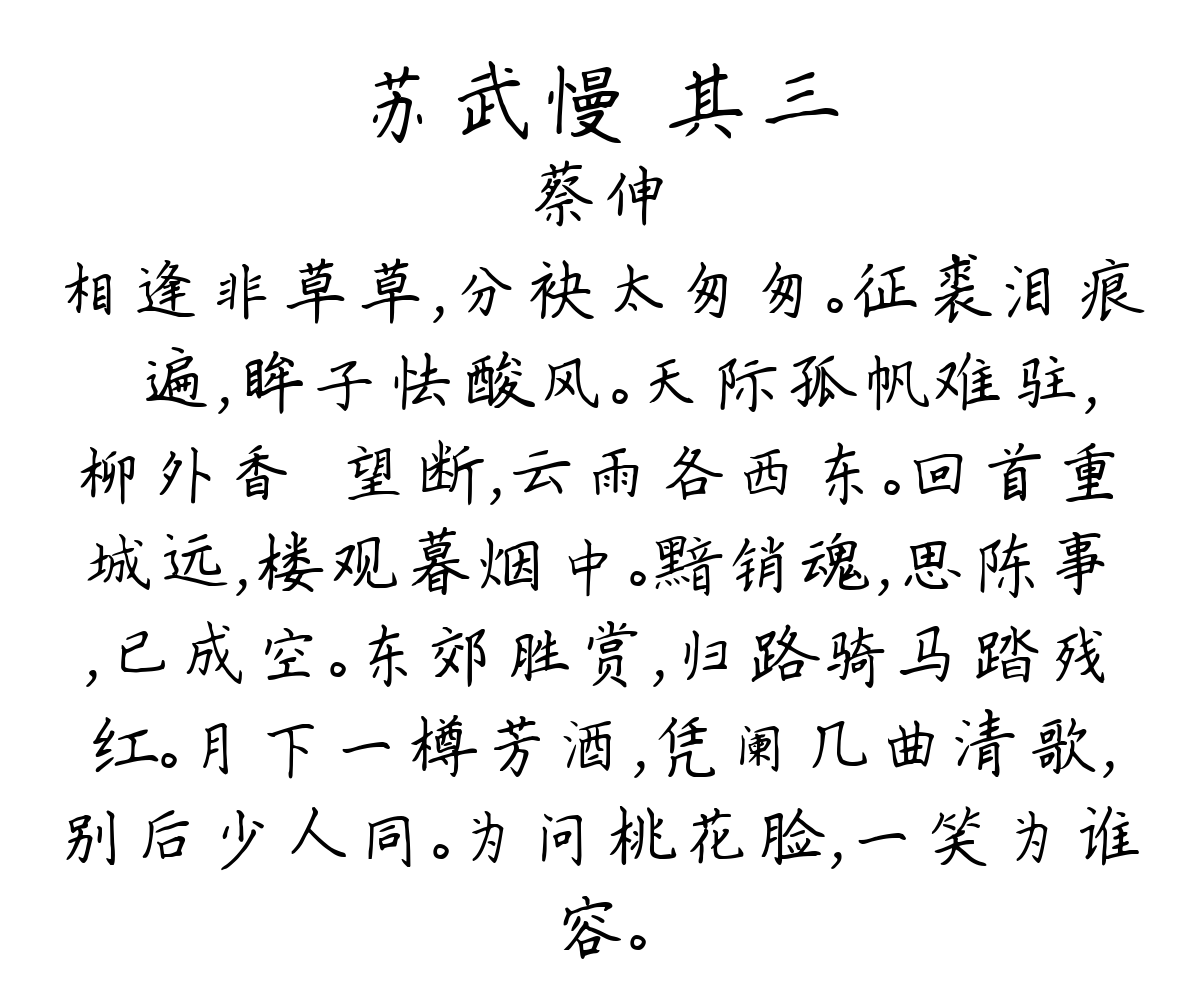 苏武慢 其三
蔡伸
相逢非草草,分袂太匆匆。征裘泪痕
遍,眸子怯酸风。天际孤帆难驻,
柳外香 望断,云雨各西东。回首重
城远,楼观暮烟中。黯销魂,思陈事
,已成空。东郊胜赏,归路骑马踏残
红。月下一樽芳酒,凭阑几曲清歌,
别后少人同。为问桃花脸,一笑为谁
容。